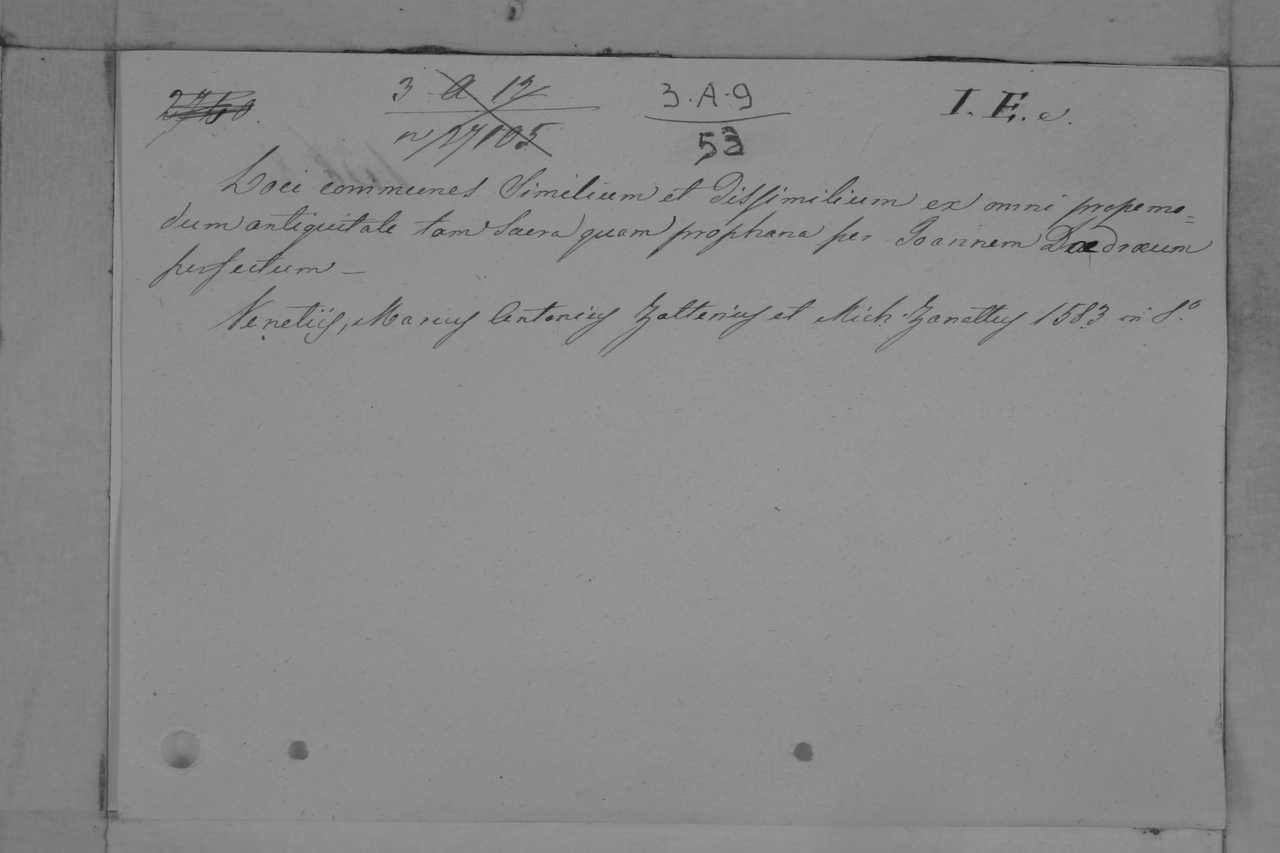 3 A 12
3·A·9
I. E. c.
n 27105
53
Loci communes Similium et Dissimilium ex omni propemo=
dum antiquitate tam Sacra quam prophana per Joannem Dædræum
perfectum —
Venetiis, Marcus Antonius Zalterius et Mich. Zanettus 1583 in 8.º